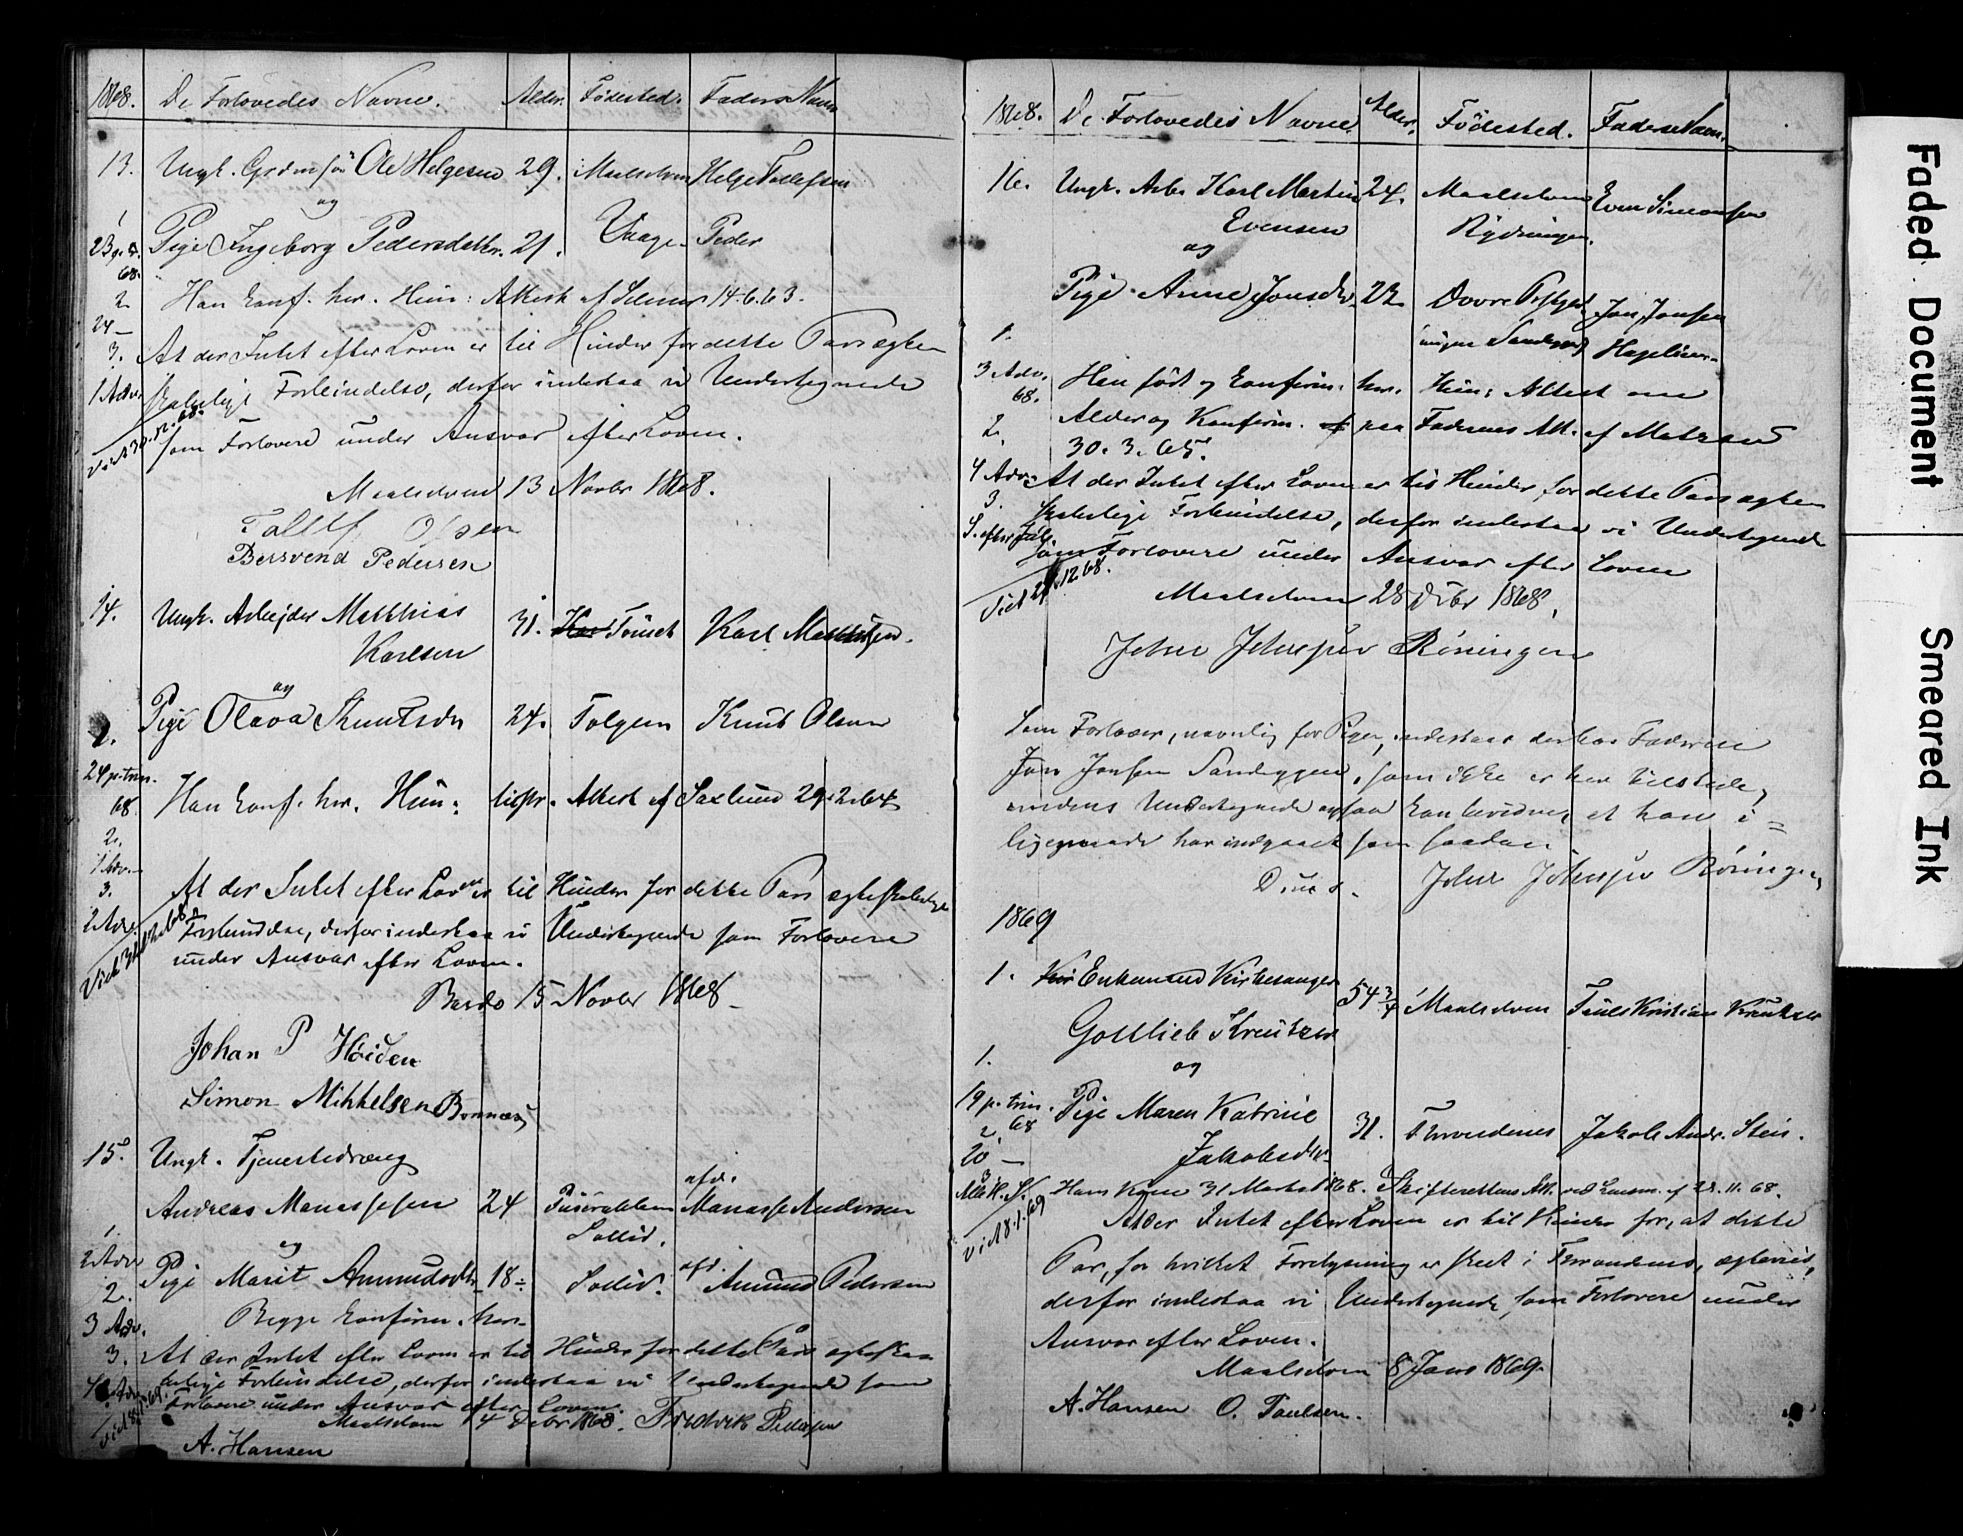 1868. De Forlovedes Navne. Alder. Födested. Faders Navn
13. Ungk. Ole Helgesen 29. Maalselven Helge Tollefsen
og
1 Pige Ingeborg Pedersdatter. 21. Vaage. Peder
68.
2. Han konf. her. Hun: Attest af 14.6.63.
24 —
3. At der Intet efter Loven er til Hinder for dette Pars ægte
1 Adv. skabelige Forbindelse, derfor indestaa vi Undertegnede
som Forlovere under Ansvar efter Loven.
Viet 30.12.68.
Maalselven 13 Novbr 1868.
Tollef Olsen
Bersvend Pedersen
14. Ungk. Arbejder Matthias 31. Karl
Karlsen
og
Pige Olava Knutsdr 24. Tolgen Knut Olsen
1.
24 p. trin.
68 Han konf. her. Hun: Attest af Saxlund
2.
1 Adv.
3. At der Intet efter Loven er til Hinder for dette Pars ægteskabelige
2 Adv. Forbindelse, derfor indestaa vi Undertegnede som Forlovere
under Ansvar efter Loven.
Bardo 15 Novbr 1868
Johan P Höiden
Simon Mikkelsen
15. Ungk. Tjenestedreng
afd.
Andreas Manassesen 24 Manasse Andersen
1. Sollid.
2 Adv og afd.
Pige Marit Amundsdtr 18 Sollid. Amund Pedersen
2.
3 Adv. Begge konfirm. her.
3. At der Intet efter Loven er til Hinder for dette Pars ægteska
belige Forbindelse, derfor indestaa vi Undertegnede som
Forlovere under Ansvar efter Loven.
Maalselven 4 Debr 1868. Fredrik Pedersen
A. Hansen
1868. De Forlovedes Navne. Alder. Födested. Faders Navn.
16. Ungk. Arb. Karl Martin 24. Maalselven Even Simonsen
Evensen
og
Pige Anne Jonsdr. 22 Dovre Jon Jonsen
1.
3 Adv. Han födt og konfirm. her. Hun: Attest om
68.
2. Alder og Konfirm. paa Faderens Att. af
30.3.65.
4 Adv. At der Intet efter Loven er til Hinder for dette Pars ægte
3. skabelige Forbindelse, derfor indestaa vi Undertegnede
S. efter Jul. som Forlovere under Ansvar efter Loven
Maalselven 28 Dbr 1868.
John Johnsen Röningen
Som Forlover, navnlig for Pigen, indestaar derhos Faderen
Jon Jonsen Sandeggen, som ikke er her tilstede,
medens Undertegnede ogsaa kan bevidne, at han i-
ligemaade har indgaaet som saadan.
D. u. s.
John Johnsen Röningen
1869
1. Enkemand Kirkesanger 54 3/4 Maalselven
Gottlieb Kreutzer
1. og
19 p. trin. Pige Maren Katrine 31. Throndenes Jakob Andr. Stein.
68
2.
20 — Jakobsdtr
3
Alle H. S. Hans Kone 31 Marts 1868. Skifterettens Att. ved Lensm. af 28.11.68.
Viet 8.1.69
At der Intet efter Loven er til Hinder for, at dette
Par, for hvilket Forelysning er skeet i Throndenes, ægtevies,
derfor indestaa vi Undertegnede som Forlovere under
Ansvar efter Loven.
Maalselven 8 Janr 1869.
A. Hansen O. Paulsen.
Faded Document
Smeared Ink